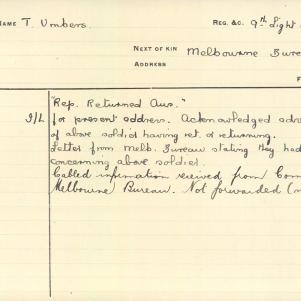 NAME T. Umbers. REG. &C. 9th Light
NEXT OF KIN Melbourne Bureau
ADDRESS
"Rep. Returned Aus."
I/L for present address. Acknowledged
of above soldier having ret. or returning.
Letter from Melb. Bureau stating they had
concerning above soldier.
Cabled information received from Com
Melbourne) Bureau. Not forwarded